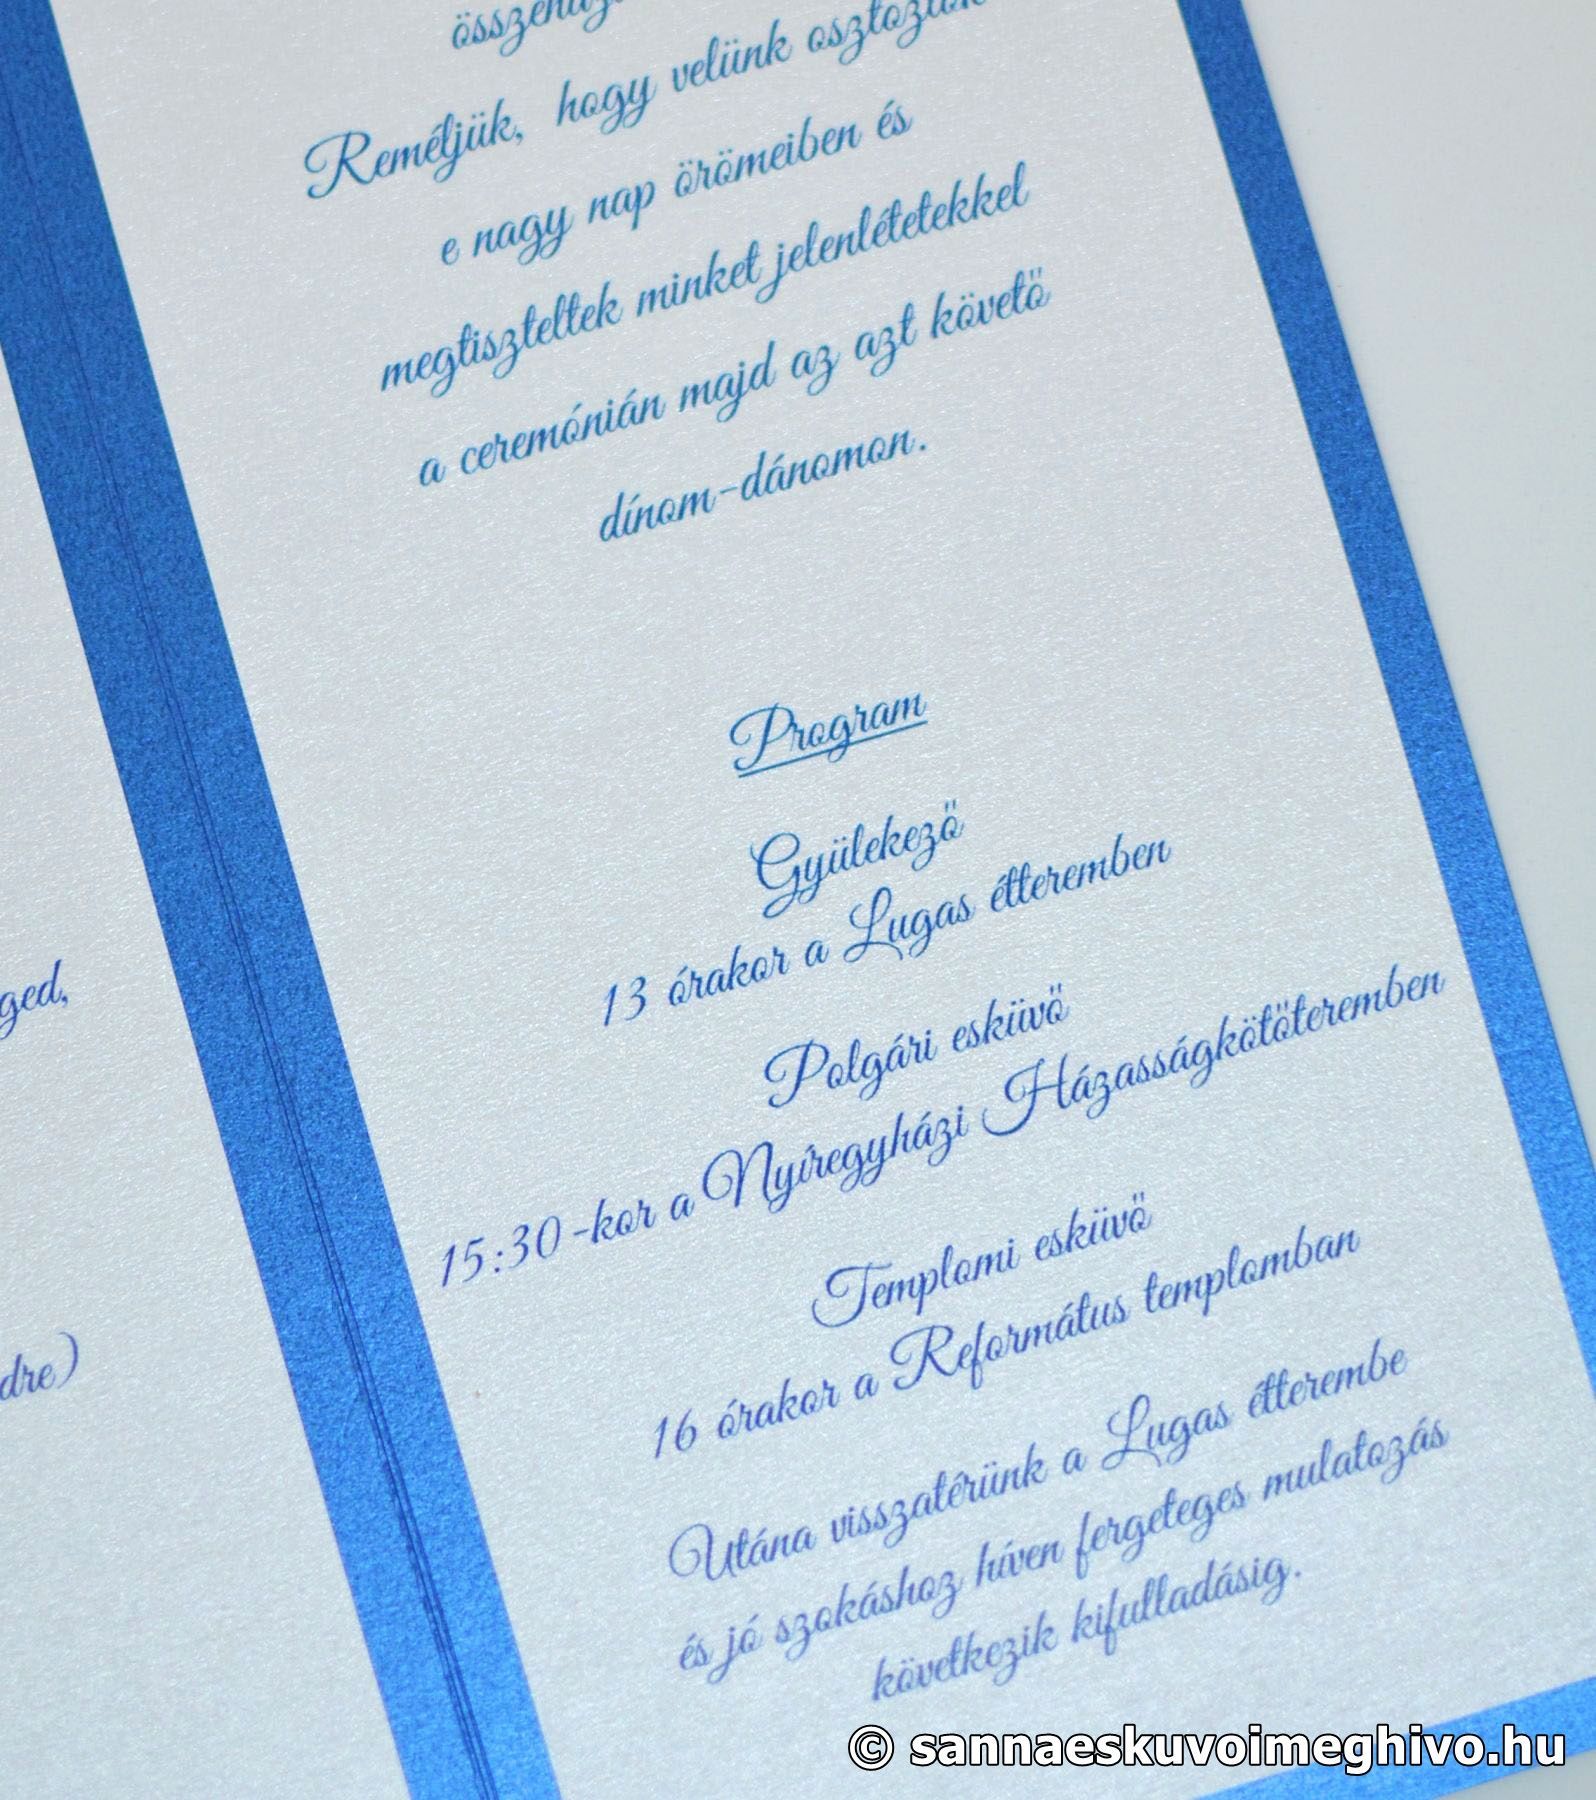 Reméljük, hogy velünk osztoztok
e nagy nap örömeiben és
megtiszteltek minket jelenlétetekkel
a ceremónián majd az azt követő
dínom-dánomon.
Program
Gyülekező
13 órakor a Lugas étteremben
Polgári esküvő
15:30-kor a Nyíregyházi Házasságkötőteremben
Templomi esküvő
16 órakor a Református templomban
Utána visszatérünk a Lugas étterembe
és jó szokáshoz híven fergeteges mulatozás
következik kifulladásig.
ged,
dre)
© sannaeskuvoimeghivo.hu